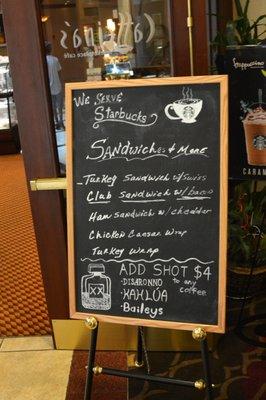 Caffeina's
We Serve
Starbucks
Sandwiches & More
Turkey Sandwich w/Swiss
Club Sandwich w/Bacon
Ham Sandwich w/cheddar
Chicken Caesar Wrap
Turkey Wrap
ADD SHOT $4
• DISARONNO to any
• KAHLÚA coffee
• Baileys
XX
CARAMEL